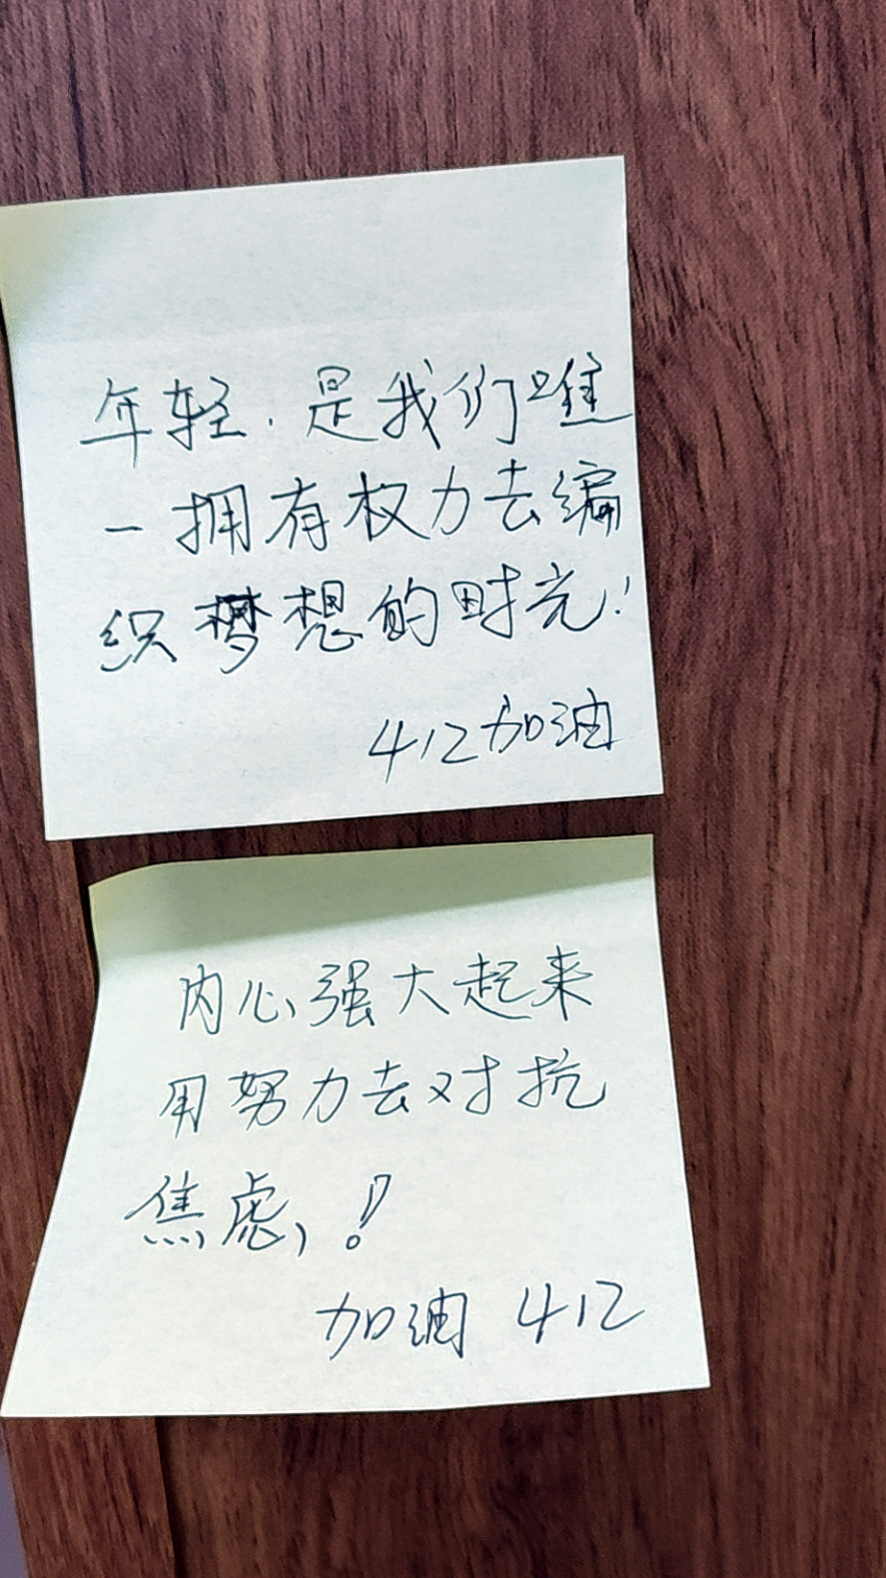 年轻.是我们唯
一拥有权力去编
织梦想的时光!
412加油
内心强大起来
用努力去对抗
焦虑、!
加油 412